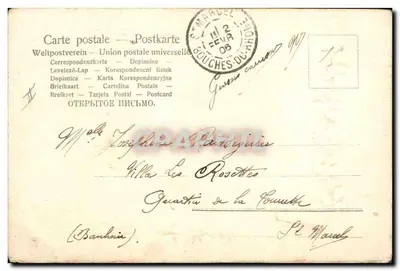 Carte postale - Postkarte
Weltpostverein - Union postale universelle
Correspondenzkarte - Dopisnice
Levelező-Lap - Korespondenční lístek
Dopisnica - Karta Korespondencyjna
Briefkaart - Cartolina Postale
Brefkort - Tarjeta Postal - Postcard
ОТКРЫТОЕ ПИСЬМО.
ST MARCEL
BOUCHES-DU-RHONE
2
08
Melle Joséphine
Villa Les Rosettes
Quartier de la
St Marcel
(Banlieue)